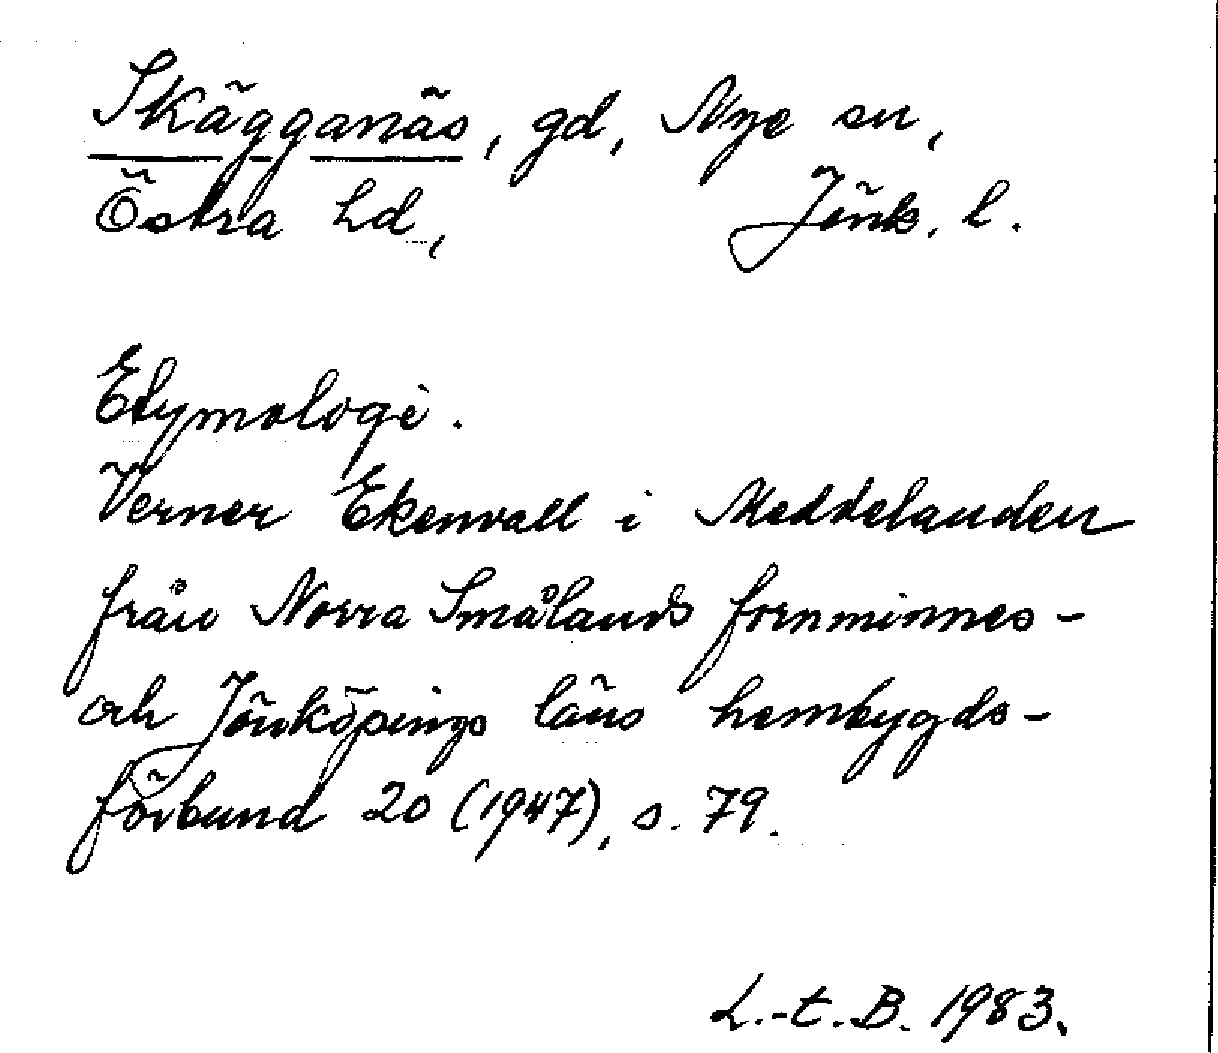 Skägganäs, gd, Nye sn,
Östra hd, Jönk. l.
Etymologi.
Verner Ekenvall i Meddelanden
från Norra Smålands fornminnes-
och Jönköpings läns hembygds-
förbund 20 (1947), s. 79.
L.-t. B. 1983.